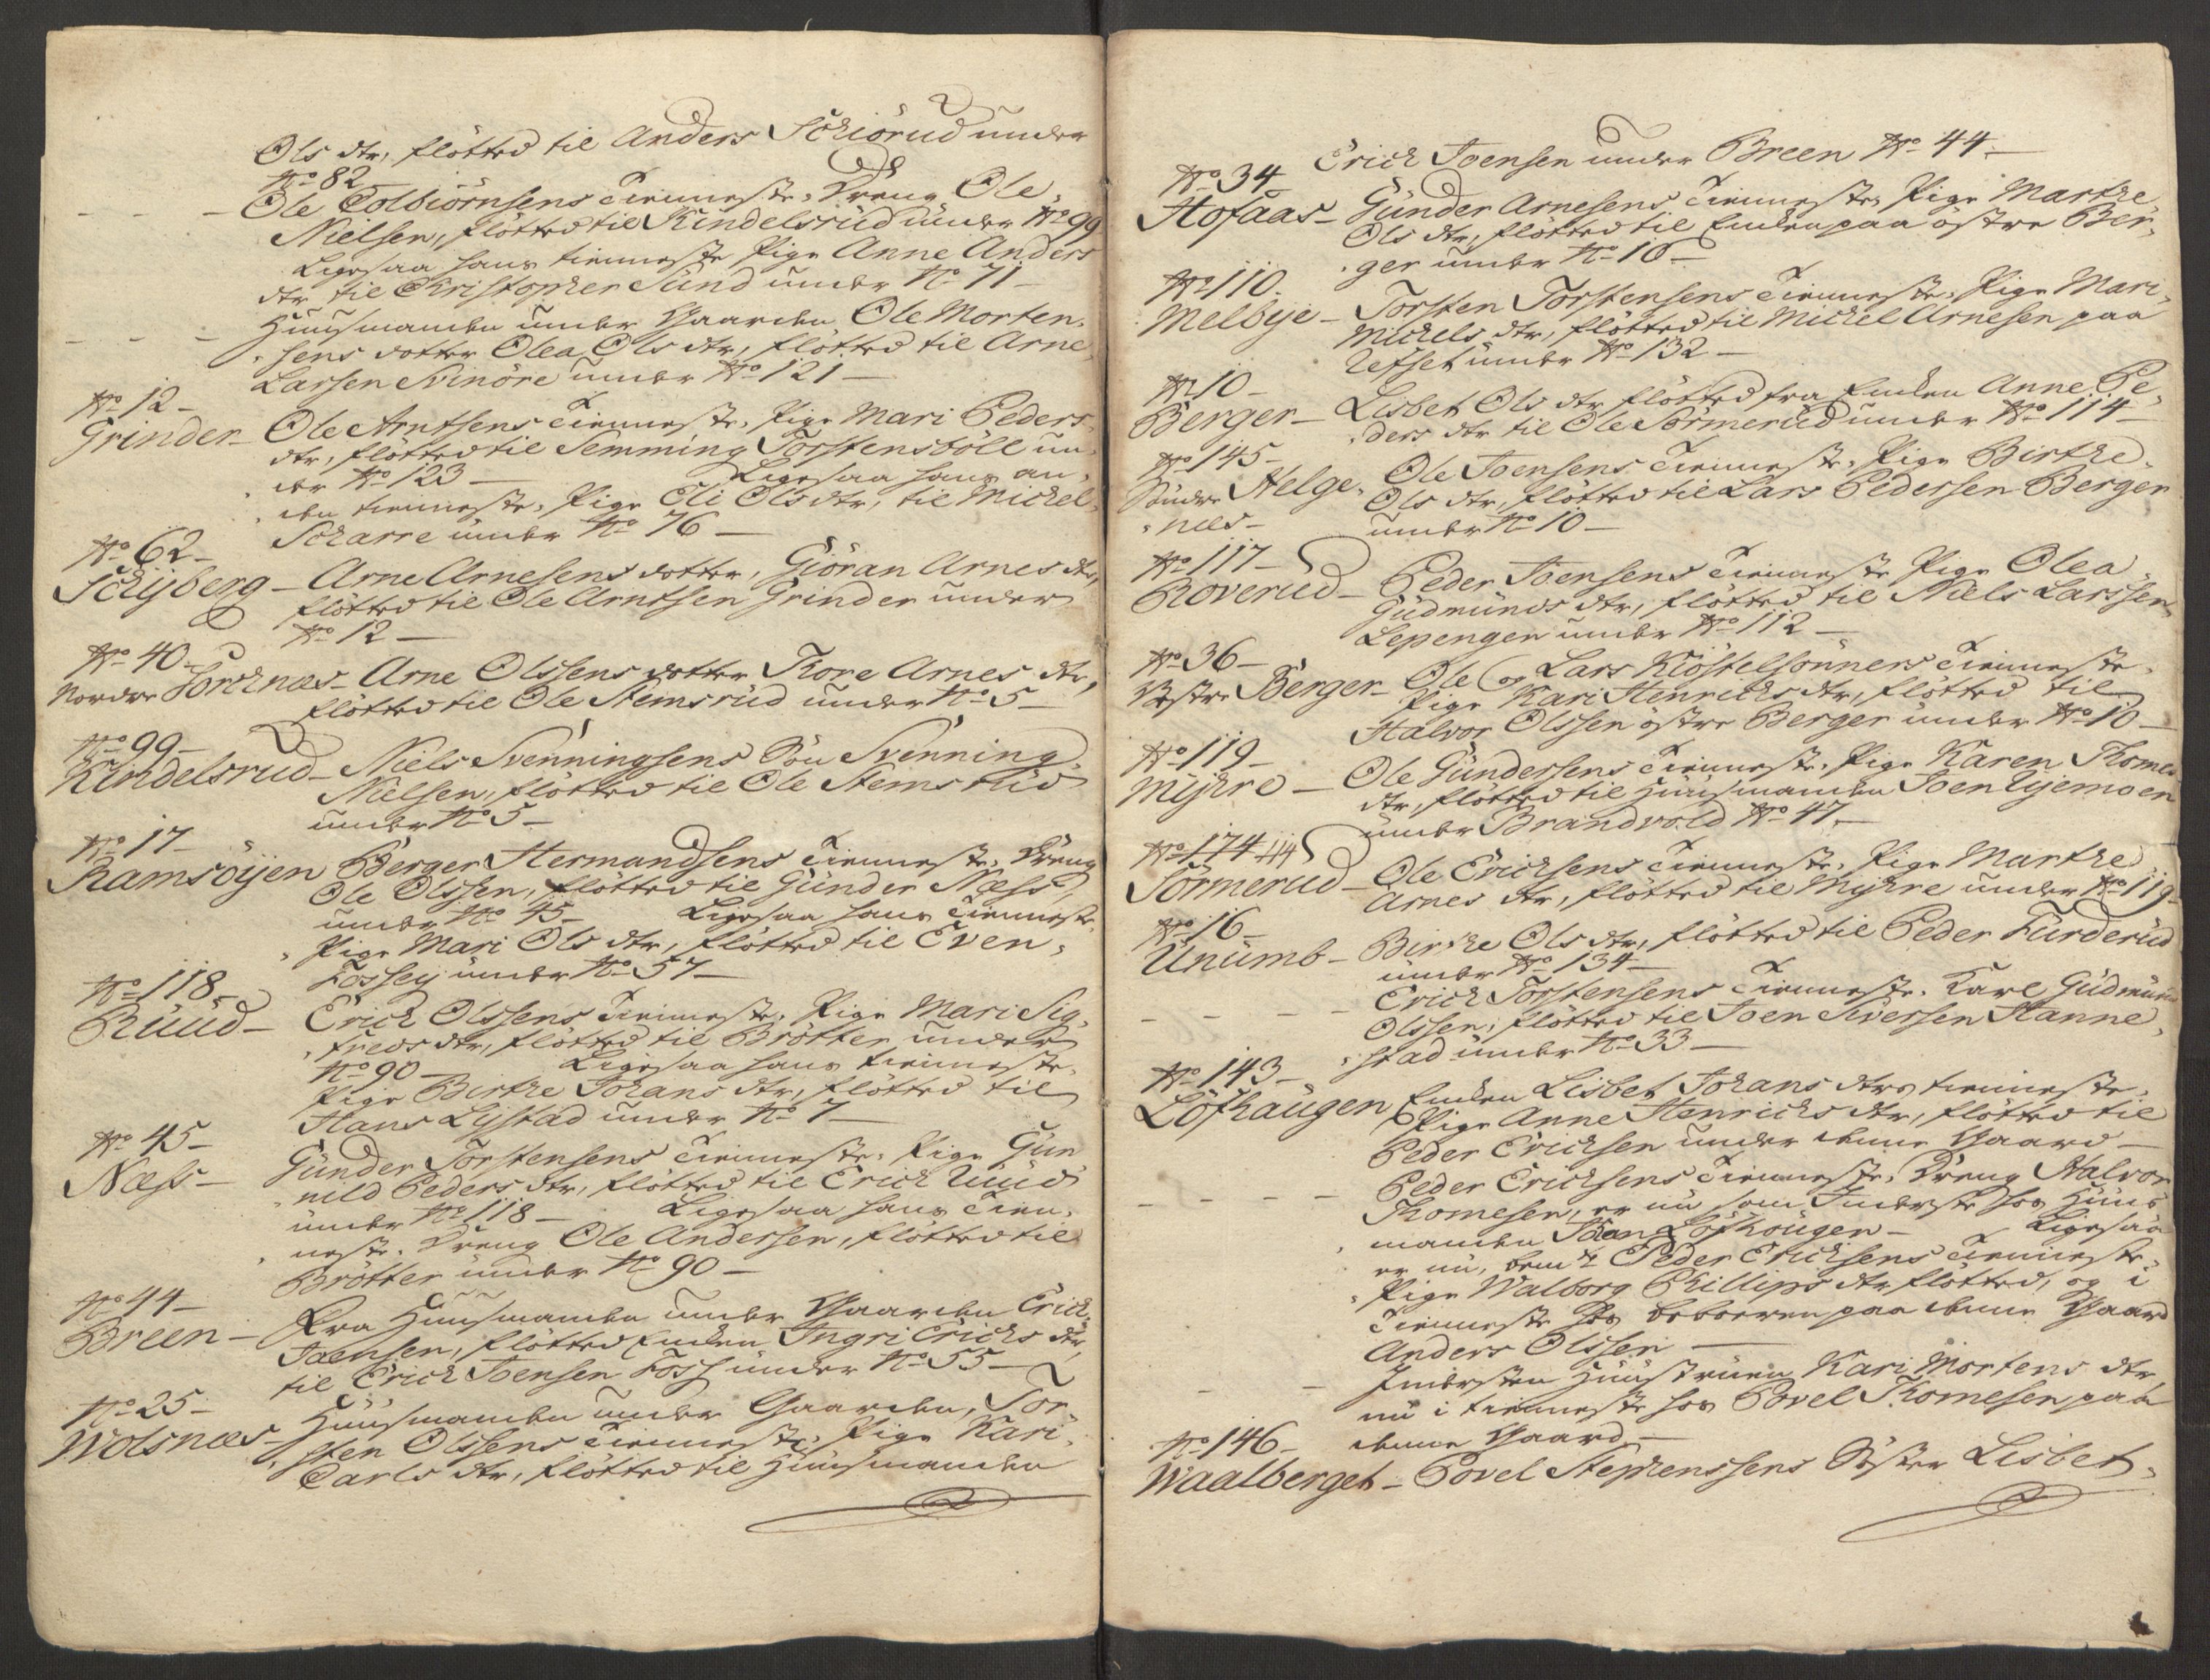 Ols dtr, flötted til Anders Schiörud under
No 82
- - - Ole Tolbiörnsens Tienneste-Dreng Ole
Nielsen, flötted til Kindelsrud under No 99
Ligesaa hans tienneste Pige Anne Anders
dtr til Christopher Sund under No 71 -
- - - Huusmanden under Gaarden Ole Morten-
sens dotter Olea Ols dtr, flötted til Arne
Larsen Svinöre under No 121 -
No 12 -
Grinder - Ole Arntsens Tienneste-Pige Mari Peders
dtr, flötted til Semming Torstensböll un-
der No 123 - Ligesaa hans an-
den tienneste-Pige Eli Ols dtr, til Michel
Scharre under No 76 -
No 62 -
Schyberg - Arne Arnesens dotter, Giöran Arnes dtr,
flötted til Ole Arntsen Grinder under
No 12 -
No 40 -
Nordre Torchnæs - Arne Olssens dotter Thore Arnes dtr,
flötted til Ole Stemsrud under No 5 -
No 99 -
Kindelsrud - Niels Svenningsens Sön Svenning
Nielsen, flötted til Ole Stemsrud
under No 5 -
No 17 -
Ramsöyen Berger Hermandsens Tienneste-Dreng
Ole Olssen, flötted til Gunder Næss,
under No 45 - Ligesaa hans Tienneste
Pige Mari Ols dtr, flötted til Even
Fossey under No 57 -
No 118 -
Ruud - Erich Olssens Tienneste-Pige Mari Sig-
freds dtr, flötted til Brötter under
No 90 - Ligesaa hans tienneste-
Pige Birthe Johans dtr, flötted til
Hans Lystad under No 7 -
No 45 -
Næss - Gunder Torstensens Tienneste-Pige Gun
nild Peders dtr, flötted til Erich Ruud
under No 118 - Ligesaa hans Tien-
neste-Dreng Ole Andersen, flötted til
Brötter under No 90 -
No 44 -
Breen - Fra Huusmanden under Gaarden Erich
Joensen, flötted Enken Ingri Erichs dtr,
til Erich Joensen Foss under No 55 -
No 25 -
Wolsnæs - Huusmanden under Gaarden, Tor
sten Olssens Tienneste-Pige Kari
Carls dtr, flötted til Huusmanden
Erich Joensen under Breen No 44 -
No 34
Hofaas - Gunder Arnesens Tienneste-Pige Marthe
Ols dtr, flötted til Enken paa östre Ber-
ger under No 10 -
No 110
Melbye - Torsten Torstensens Tienneste-Pige Mari
Michels dtr, flötted til Michel Arnesen paa
Refset under No 132 -
No 10 -
Berger - Lisbet Ols dtr flötted fra Enken Anne Pe-
ders dtr til Ole Sörmerud under No 114 -
No 145 -
Söndre Helge- Ole Joensens Tienneste-Pige Birthe
næs - Ols dtr, flötted til Lars Pedersen Berger
under No 10 -
No 117 -
Roverud - Peder Joensens Tienneste Pige Olea
Gudmunds dtr, flötted til Niels Larssen
Lepengen under No 112 -
No 36 -
Vestre Berger - Ole og Lars Kiöstelsönners Tienneste-
Pige Kari Henrichs dtr, flötted til
Halvor Olssen östre Berger under No 10 -
No 119 -
Myhre - Ole Gundersens Tienneste-Pige Karen Thomes
dtr, flötted til Huusmanden Joen Ujemoen
under Brandvold No 47 -
No 174 114
Sörmerud - Ole Erichsens Tienneste-Pige Marthe
Arnes dtr, flötted til Myhre under No 119 -
No 16 -
Unumb - Birthe Ols dtr, flötted til Peder Furderud
under No 134 -
- - - - Erich Torstensens Tienneste-Karl Gudmund
Olssen, flötted til Joen Siversen Hanne-
stad under No 33 -
No 143 -
Löfhaugen Enken Lisbet Johans dtrs tienneste-
Pige Anne Henrichs dtr, flötted til
Peder Erichsen under denne Gaard -
- - - - Peder Erichsens Tienneste-Dreng Halvor
Thomesen, er nu som Inderste hos Huus
manden Joen Löfhougen - Ligesaa
er nu, bemte Peder Erichsens Tienneste-
Pige Walborg Phillips dtr flötted, og i
Tienneste hos beboeren paa denne Gaard
Anders Olssen -
- - Indersten Huustruen Kari Mortens dtr
nu i tienneste hos Povel Thomesen paa
denne Gaard -
No 146 -
Waalberget - Povel Stephenssens Söster Lisbet